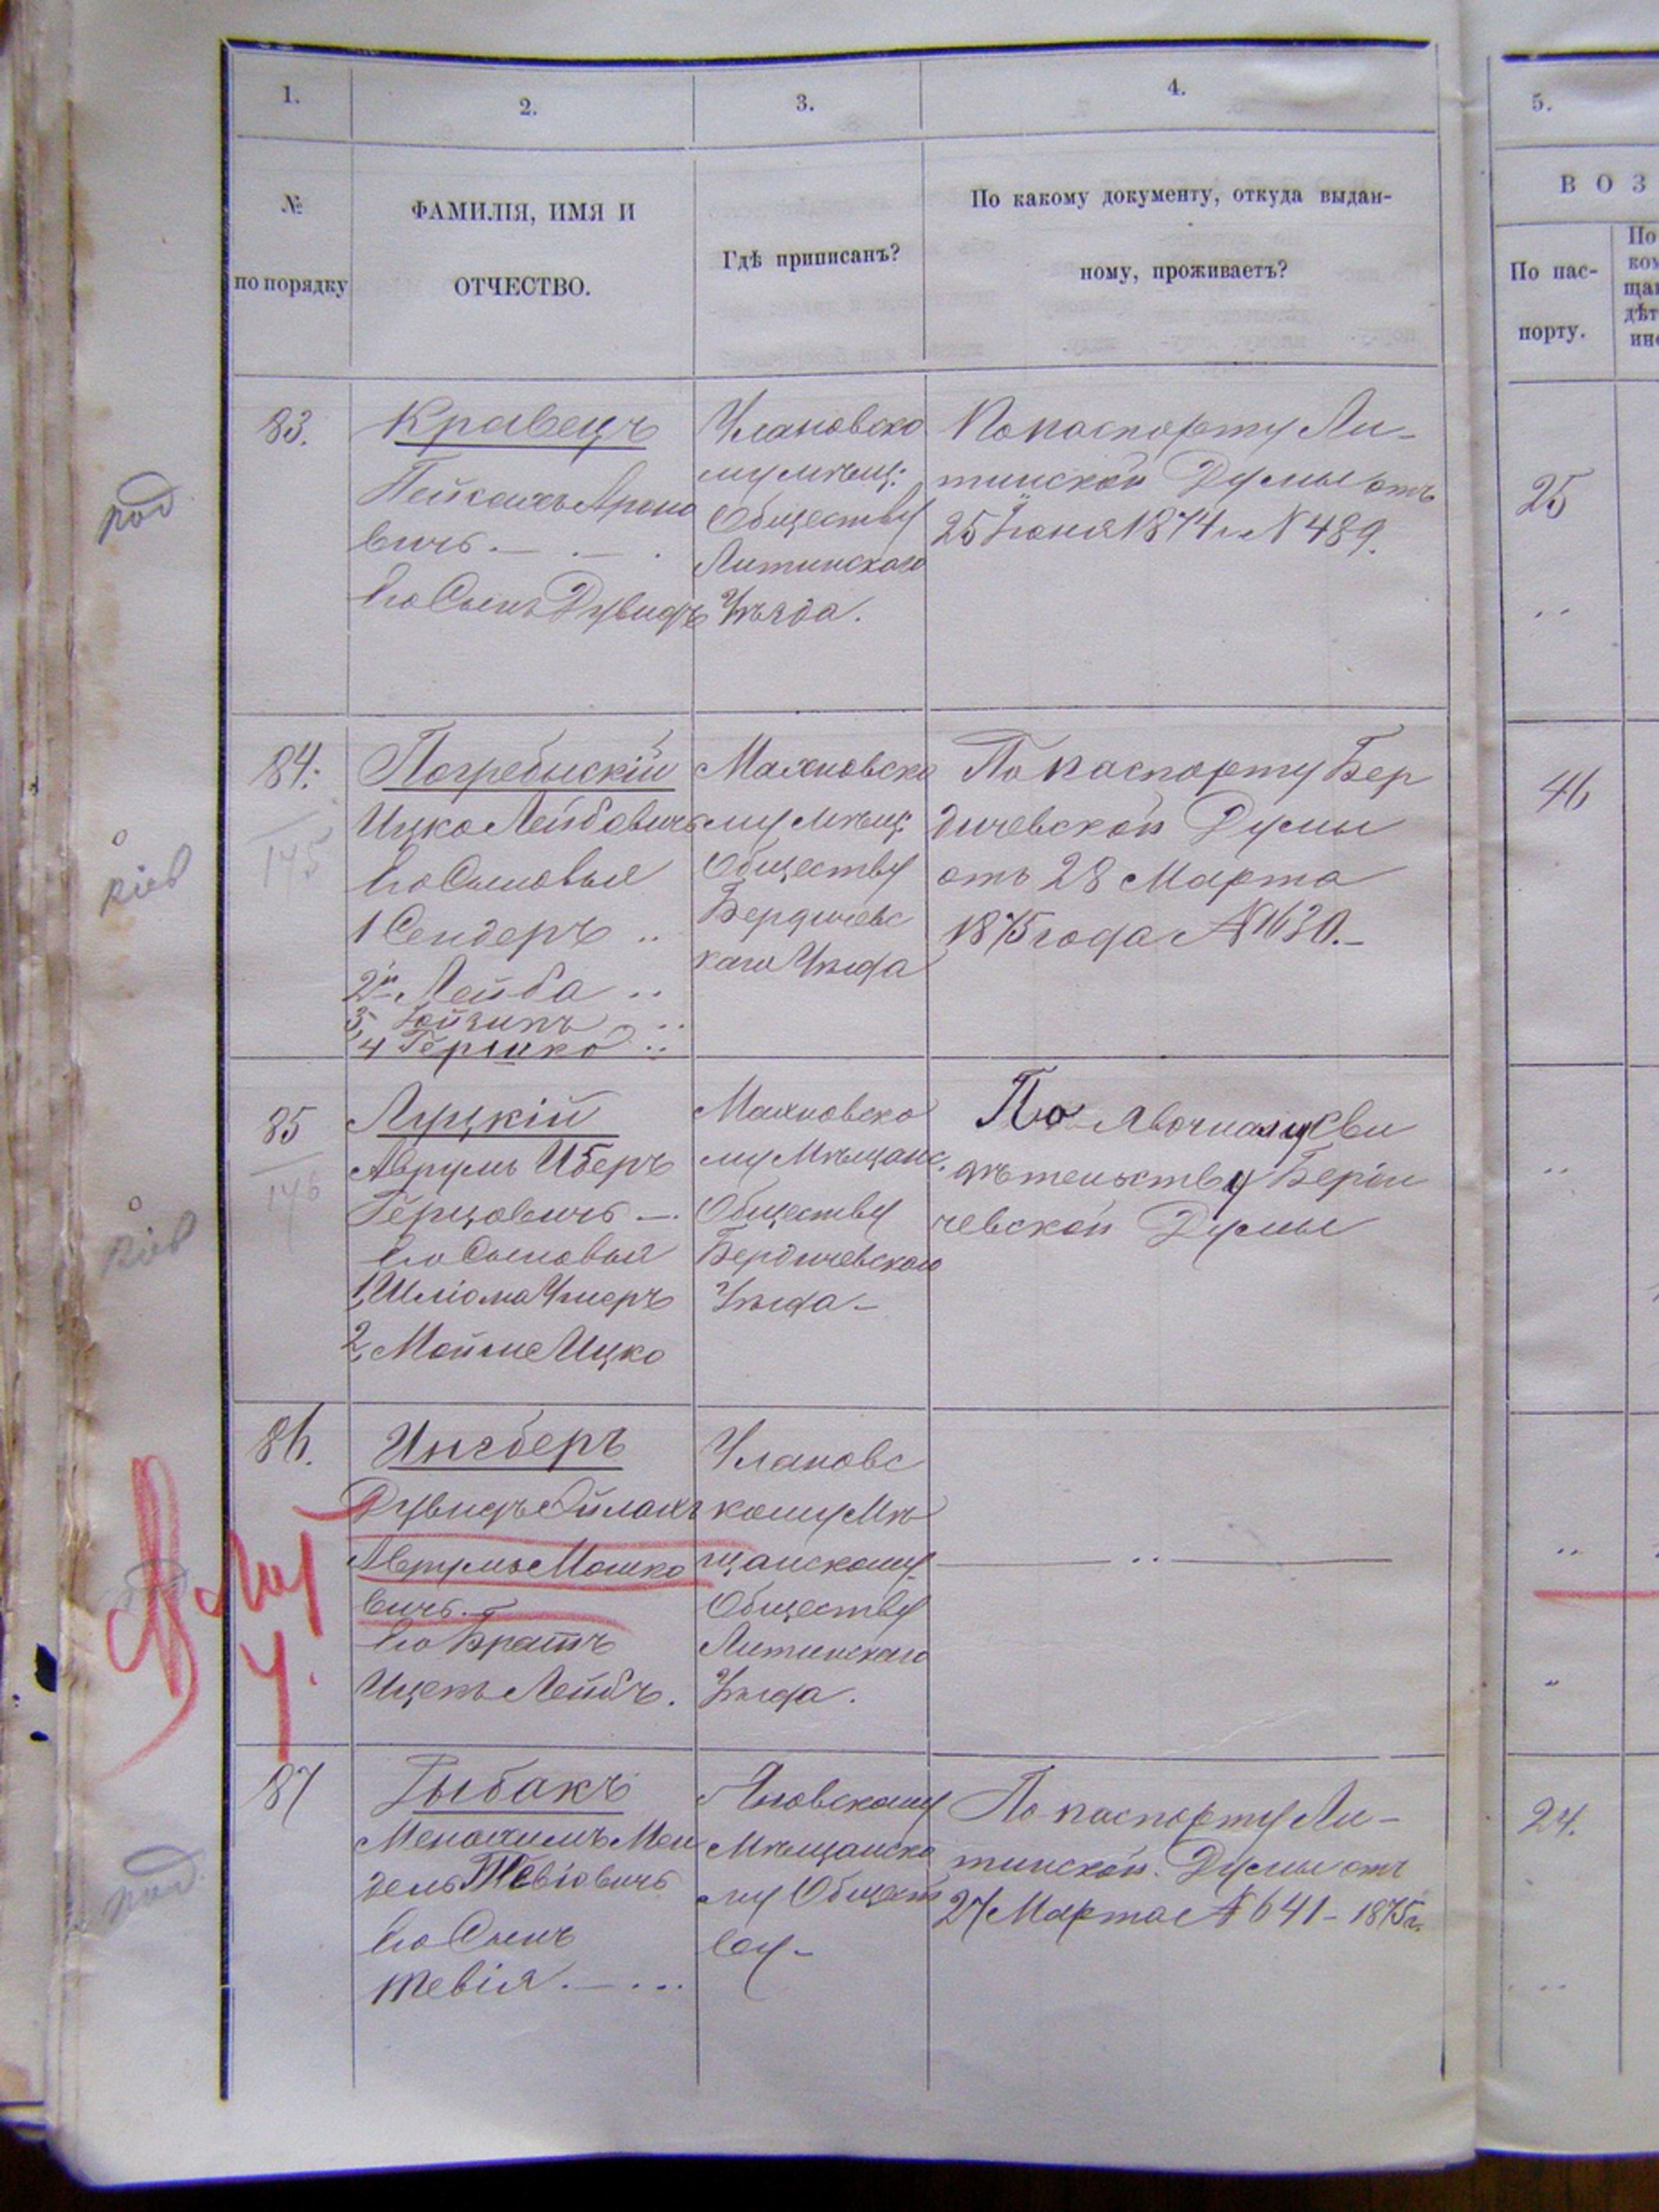 1.
2.
3.
4.
5.
№
по порядку
ФАМИЛІЯ, ИМЯ И
ОТЧЕСТВО.
Гдѣ приписанъ?
По какому документу, откуда выдан-
ному, проживаетъ?
ВОЗ
По пас-
порту.
По
ком
щан
дѣт
под
83.
Кравецъ
Пейсахъ Ароно
вичъ. — . — .
Его Сынъ Дувидъ
Улановско
му мѣщ:
Обществу
Литинскаго
Уѣзда.
По паспорту Ли-
тинской Думы отъ
25 Іюня 1874 г. № 489.
25
кіев
84.
145
Погребыскій
Ицко Лейбовичъ
Его Сыновья
1 Сендеръ ..
2й Лейба ..
3, Іойзипъ ..
4 Гершко ..
Махновско
му мѣщ:
Обществу
Бердичевс
каго Уѣзда
По паспорту Бер
дичевской Думы
отъ 28 Марта
1875 года № 1630.—
46
кіев
85
146
Луцкій
Аврумъ Иберъ
Герцовичъ —.
Его Сыновья
1, Шліома Умеръ
2, Мойше Ицко
Махновско
му Мѣщанс.
Обществу
Бердичевскаго
Уѣзда —
По Явочному Сви
дѣтельству Берди
чевской Думы
86.
Ингберъ
Дувидъ
Аврумъ Мошко
вичъ. —
Его Братъ
Ицекъ Лейбъ.
Улановс
кому Мѣ
щанскому
Обществу
Литинскаго
Уѣзда.
под
87
Рыбакъ
Менахимъ Мен
дель Тевіовичъ
Его Сынъ
Тевія. — ...
Яновскому
Мѣщанско
му Общест
ву —
По паспорту Ли-
тинской Думы отъ
27 Марта № 641 — 1875 г.
24.